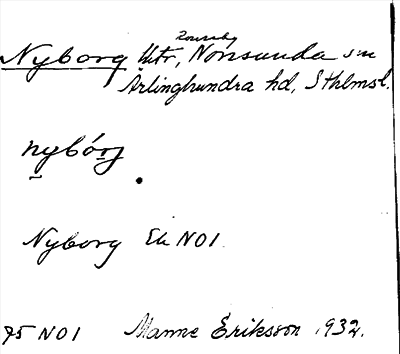 Nyborg Utr, Norrsunda sn
Ärlinghundra hd, Sthlmsl.
nybórj
Nyborg Ek NO1
75 NO1 Manne Eriksson 1932.